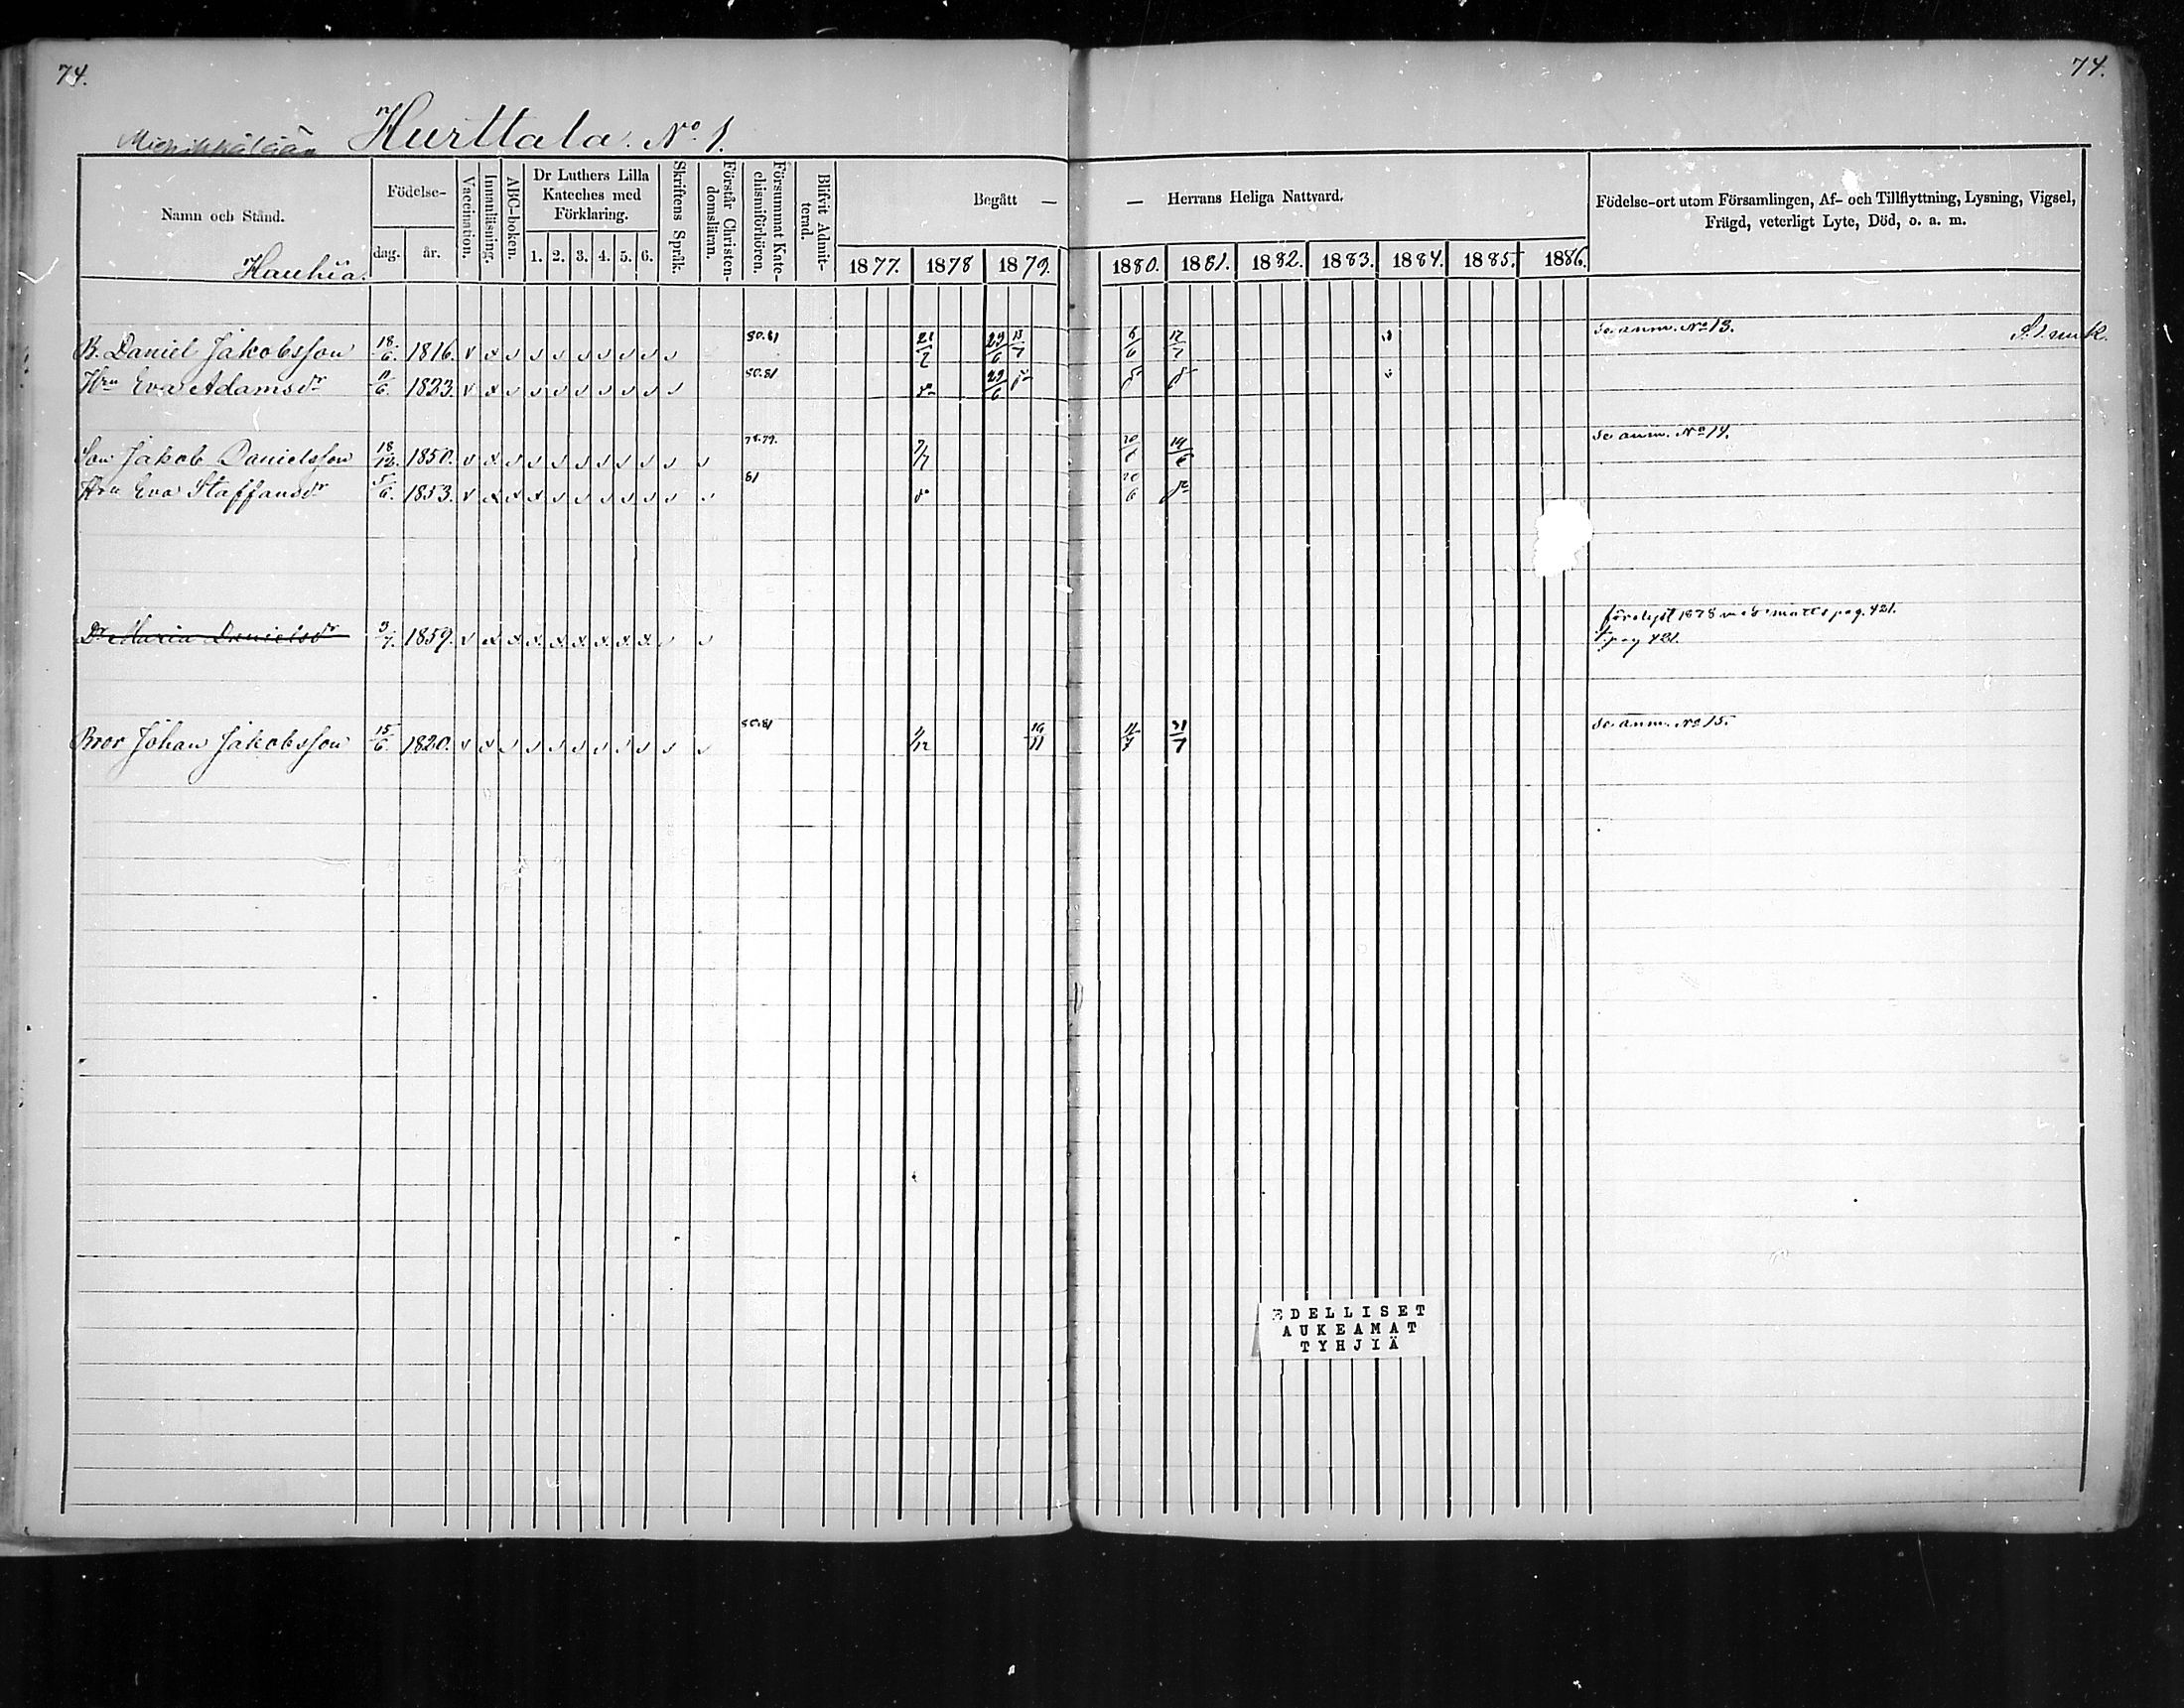 74.
74.
Hurttala. No. 1.
Namn och Stånd.
Hauhia.
Födelse-
dag. år.
Vaccination.
Innanläsning.
ABC-boken.
Dr Luthers Lilla
Kateches med
Förklaring.
1. 2. 3. 4. 5. 6.
Skriftens Språk.
Förstår Christen-
domsläran.
Försummat Kate-
chismiförhören.
Blifvit Admit-
terad.
Begått — — Herrans Heliga Nattvard.
1877. 1878 1879. 1880. 1881. 1882. 1883. 1884. 1885. 1886.
Födelse-ort utom Församlingen, Af- och Tillflyttning, Lysning, Vigsel,
Frägd, veterligt Lyte, Död, o. a. m.
B. Daniel Jakobsson 18/6. 1816. 80.81 29/6 13/7 6/6 12/7 se anm. No 13.
Hru Eva Adamsdr 11/6. 1823. 80.81 do 29/6 do do do
Son Jakob Danielsson 18/12. 1850. 78.79. 7/7 20/6 19/6 se anm. No 14.
Hru Eva Staffansdr 5/6. 1853. 81 do 20/6 do
Dr Maria Danielsdr 3/7. 1859. förelyst 1878 pag. 421.
† pag 421.
Bror Johan Jakobsson 15/6. 1820. 80.81 9/12 16/11 11/7 31/7 se anm. No 15.
EDELLISET
AUKEAMAT
TYHJIÄ